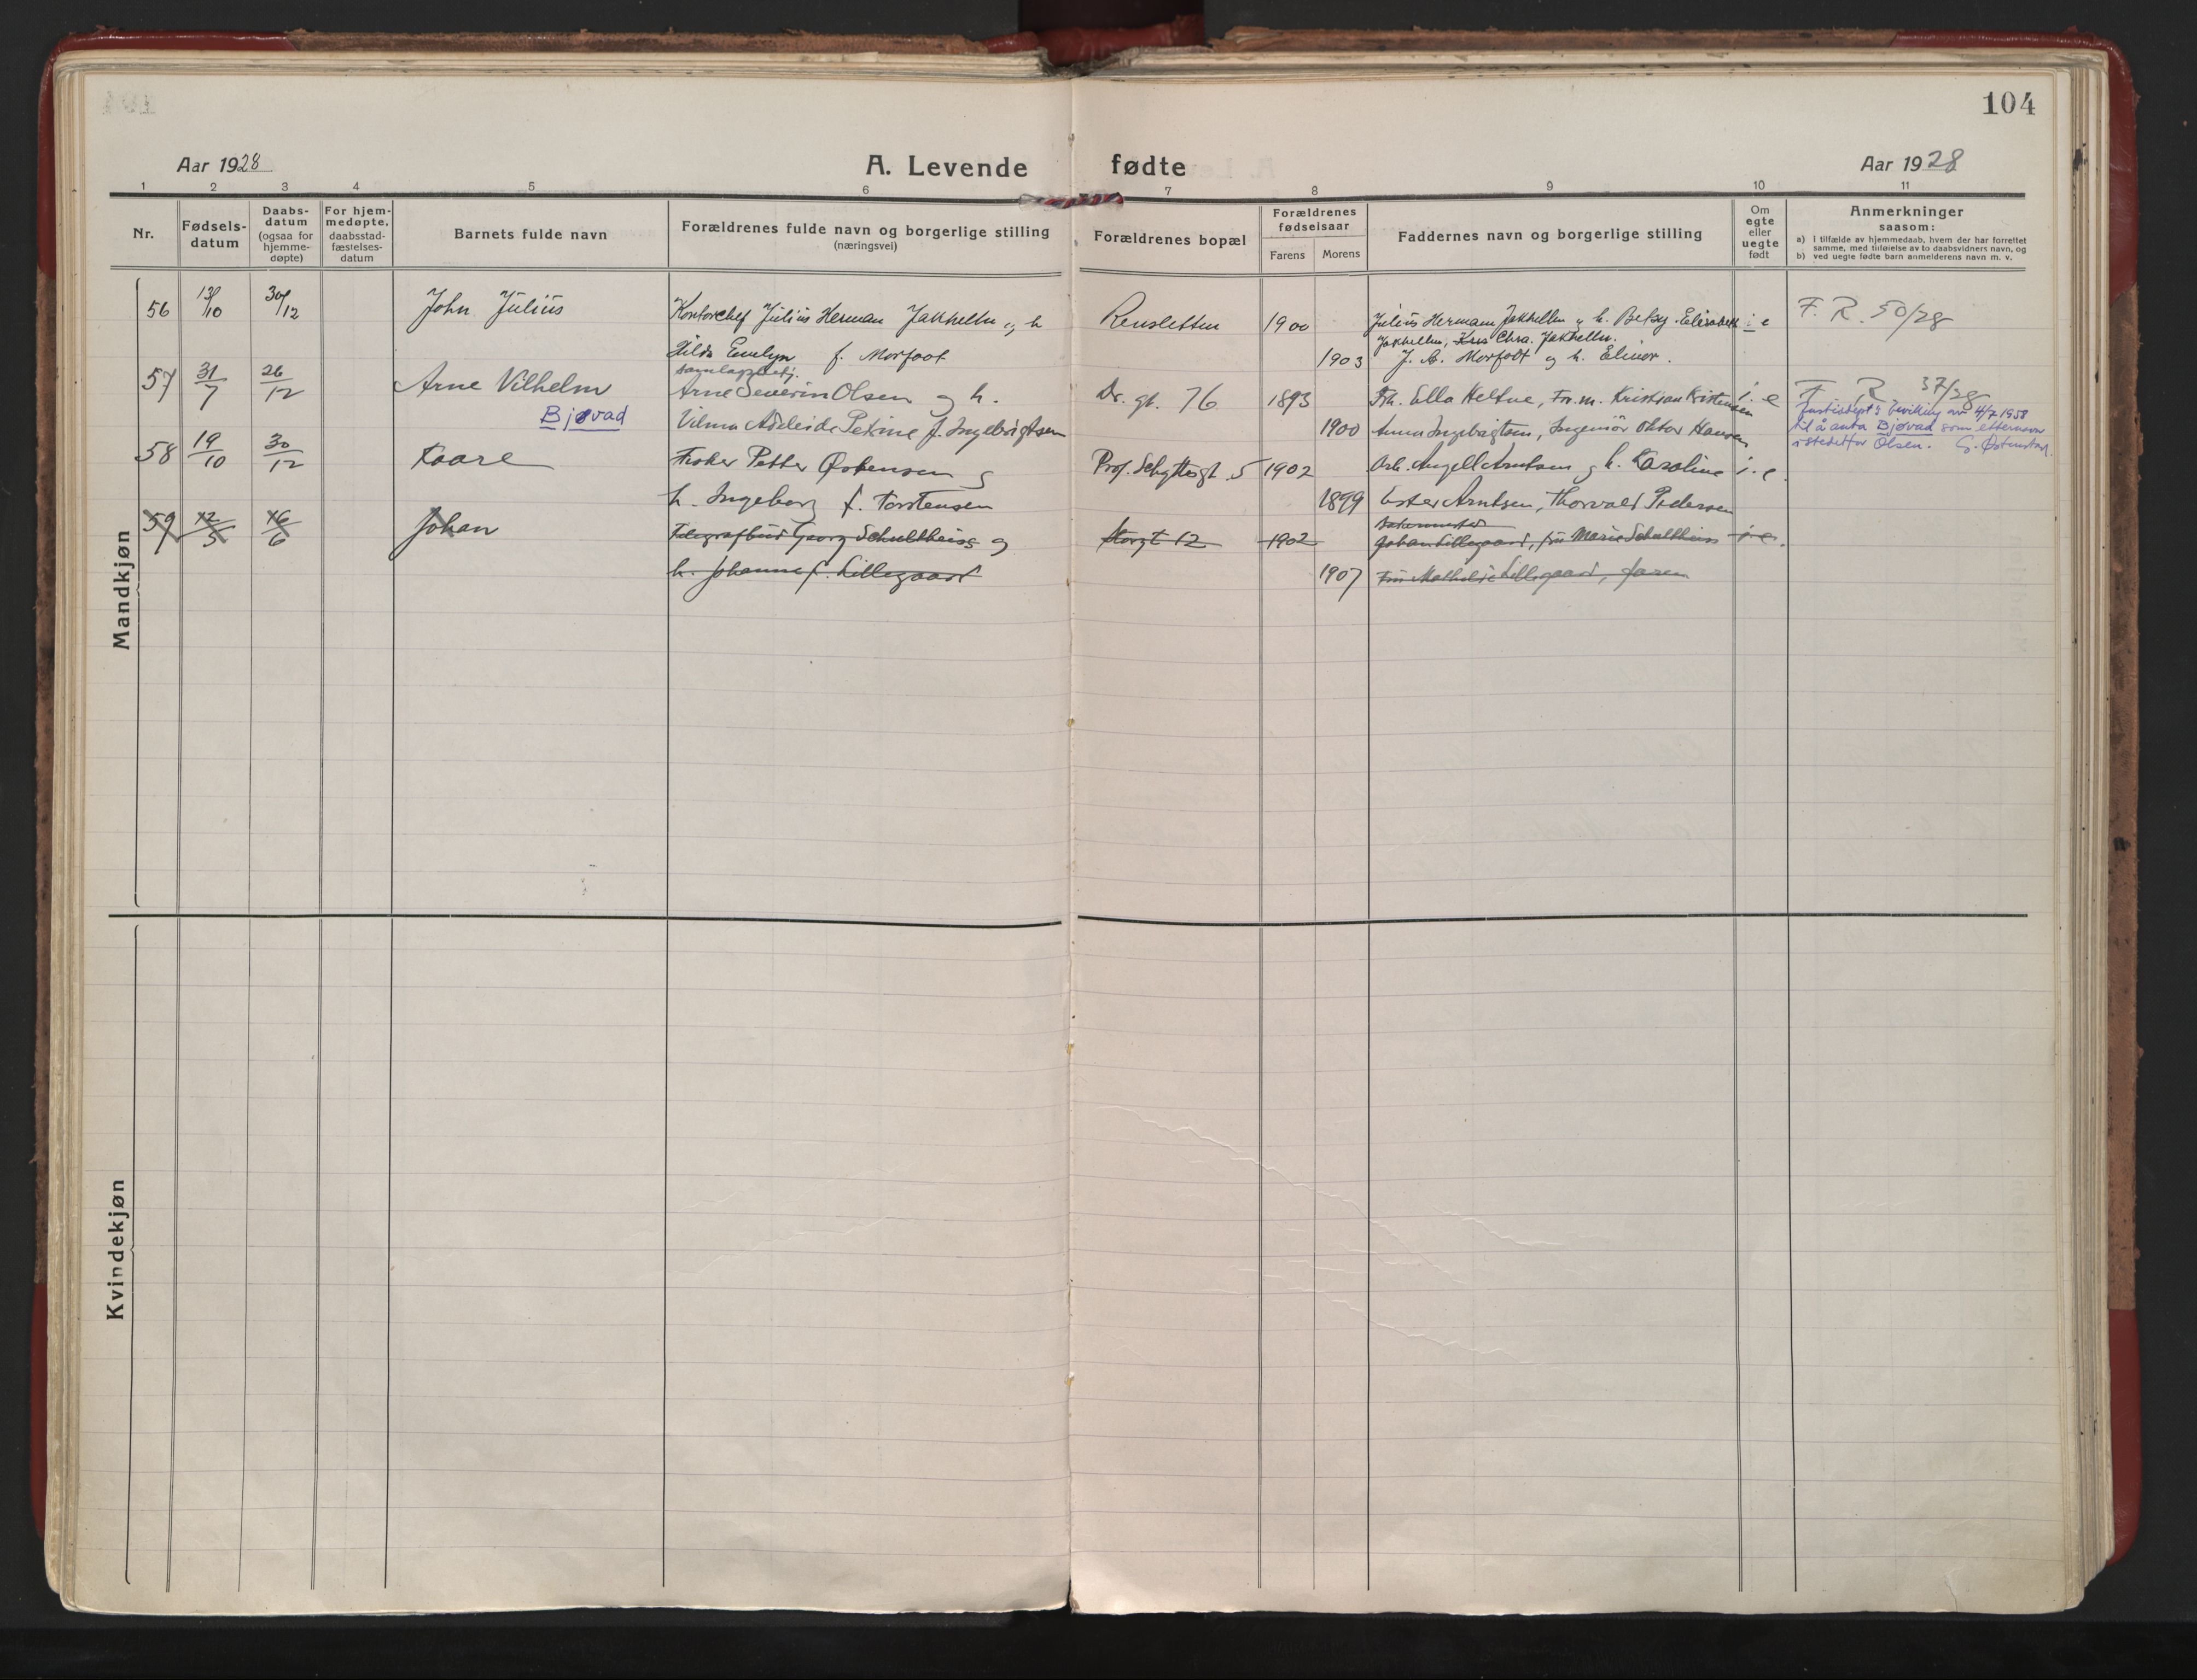 104
Aar 1928
A. Levende fødte
Aar 1928
1 2 3 4 5 6 7 8 9 10 11
Nr.
Fødsels-
datum
Daabs-
datum
(ogsaa for
hjemme-
døpte)
For hjem-
medøpte,
daabsstad-
fæstelses-
datum
Barnets fulde navn
Forældrenes fulde navn og borgerlige stilling
(næringsvei)
Forældrenes bopæl
Forældrenes
fødselsaar
Farens Morens
Faddernes navn og borgerlige stilling
Om
egte
eller
uegte
født
Anmerkninger
saasom:
a) I tilfælde av hjemmedaab, hvem der har forrettet
samme, med tilføielse av to daabsvidners navn, og
b) ved uegte fødte barn anmelderens navn m. v.
Mandkjøn
56 13/10 30/12 John Julius Kontorchef Julius Herman Jakhelln og h Rensletten 1900 Julius Hermann Jakhelln og h. Betsy Elisabeth i e F. R. 50/28
Jakhelln, Chra. Jakhelln.
Hilda Emelyn f. Morfoot 1903 J. A. Morfoot og h. Elinor.
57 31/7 26/12 Arne Vilhelm Arne Severin Olsen og h. Dr. gt. 76 1893 Frk. Ella Heltne, For.m. Kristian Kristensen i. e F. R 37/28
Bjøvad Vilma Adeleide Petrine f. Ingebrigtsen 1900 Anna Ingebrigtsen, Ingeniør Hansen
Justisdept's bevilling av 4/7 1958
til å anta Bjøvad som etternavn
istedetfor Olsen.
58 19/10 30/12 Kaare Fisker Petter Østensen og Prof. Schyttesgt. 5 1902 Arb. Angell Arntsen og h. Karoline i. e.
h. Ingeborg f. Torstensen 1899 Ester Arntsen, Thorvald Pedersen
59 12/5 16/6 Johan Telegrafbud Georg Schultheiss og Storgt 12 1902 Johan Lillegaard, fru Marie Schultheiss i e.
h. Johanne f. Lillegaard 1907 Fru Mathilde Lillegaard, faren
Kvindekjøn